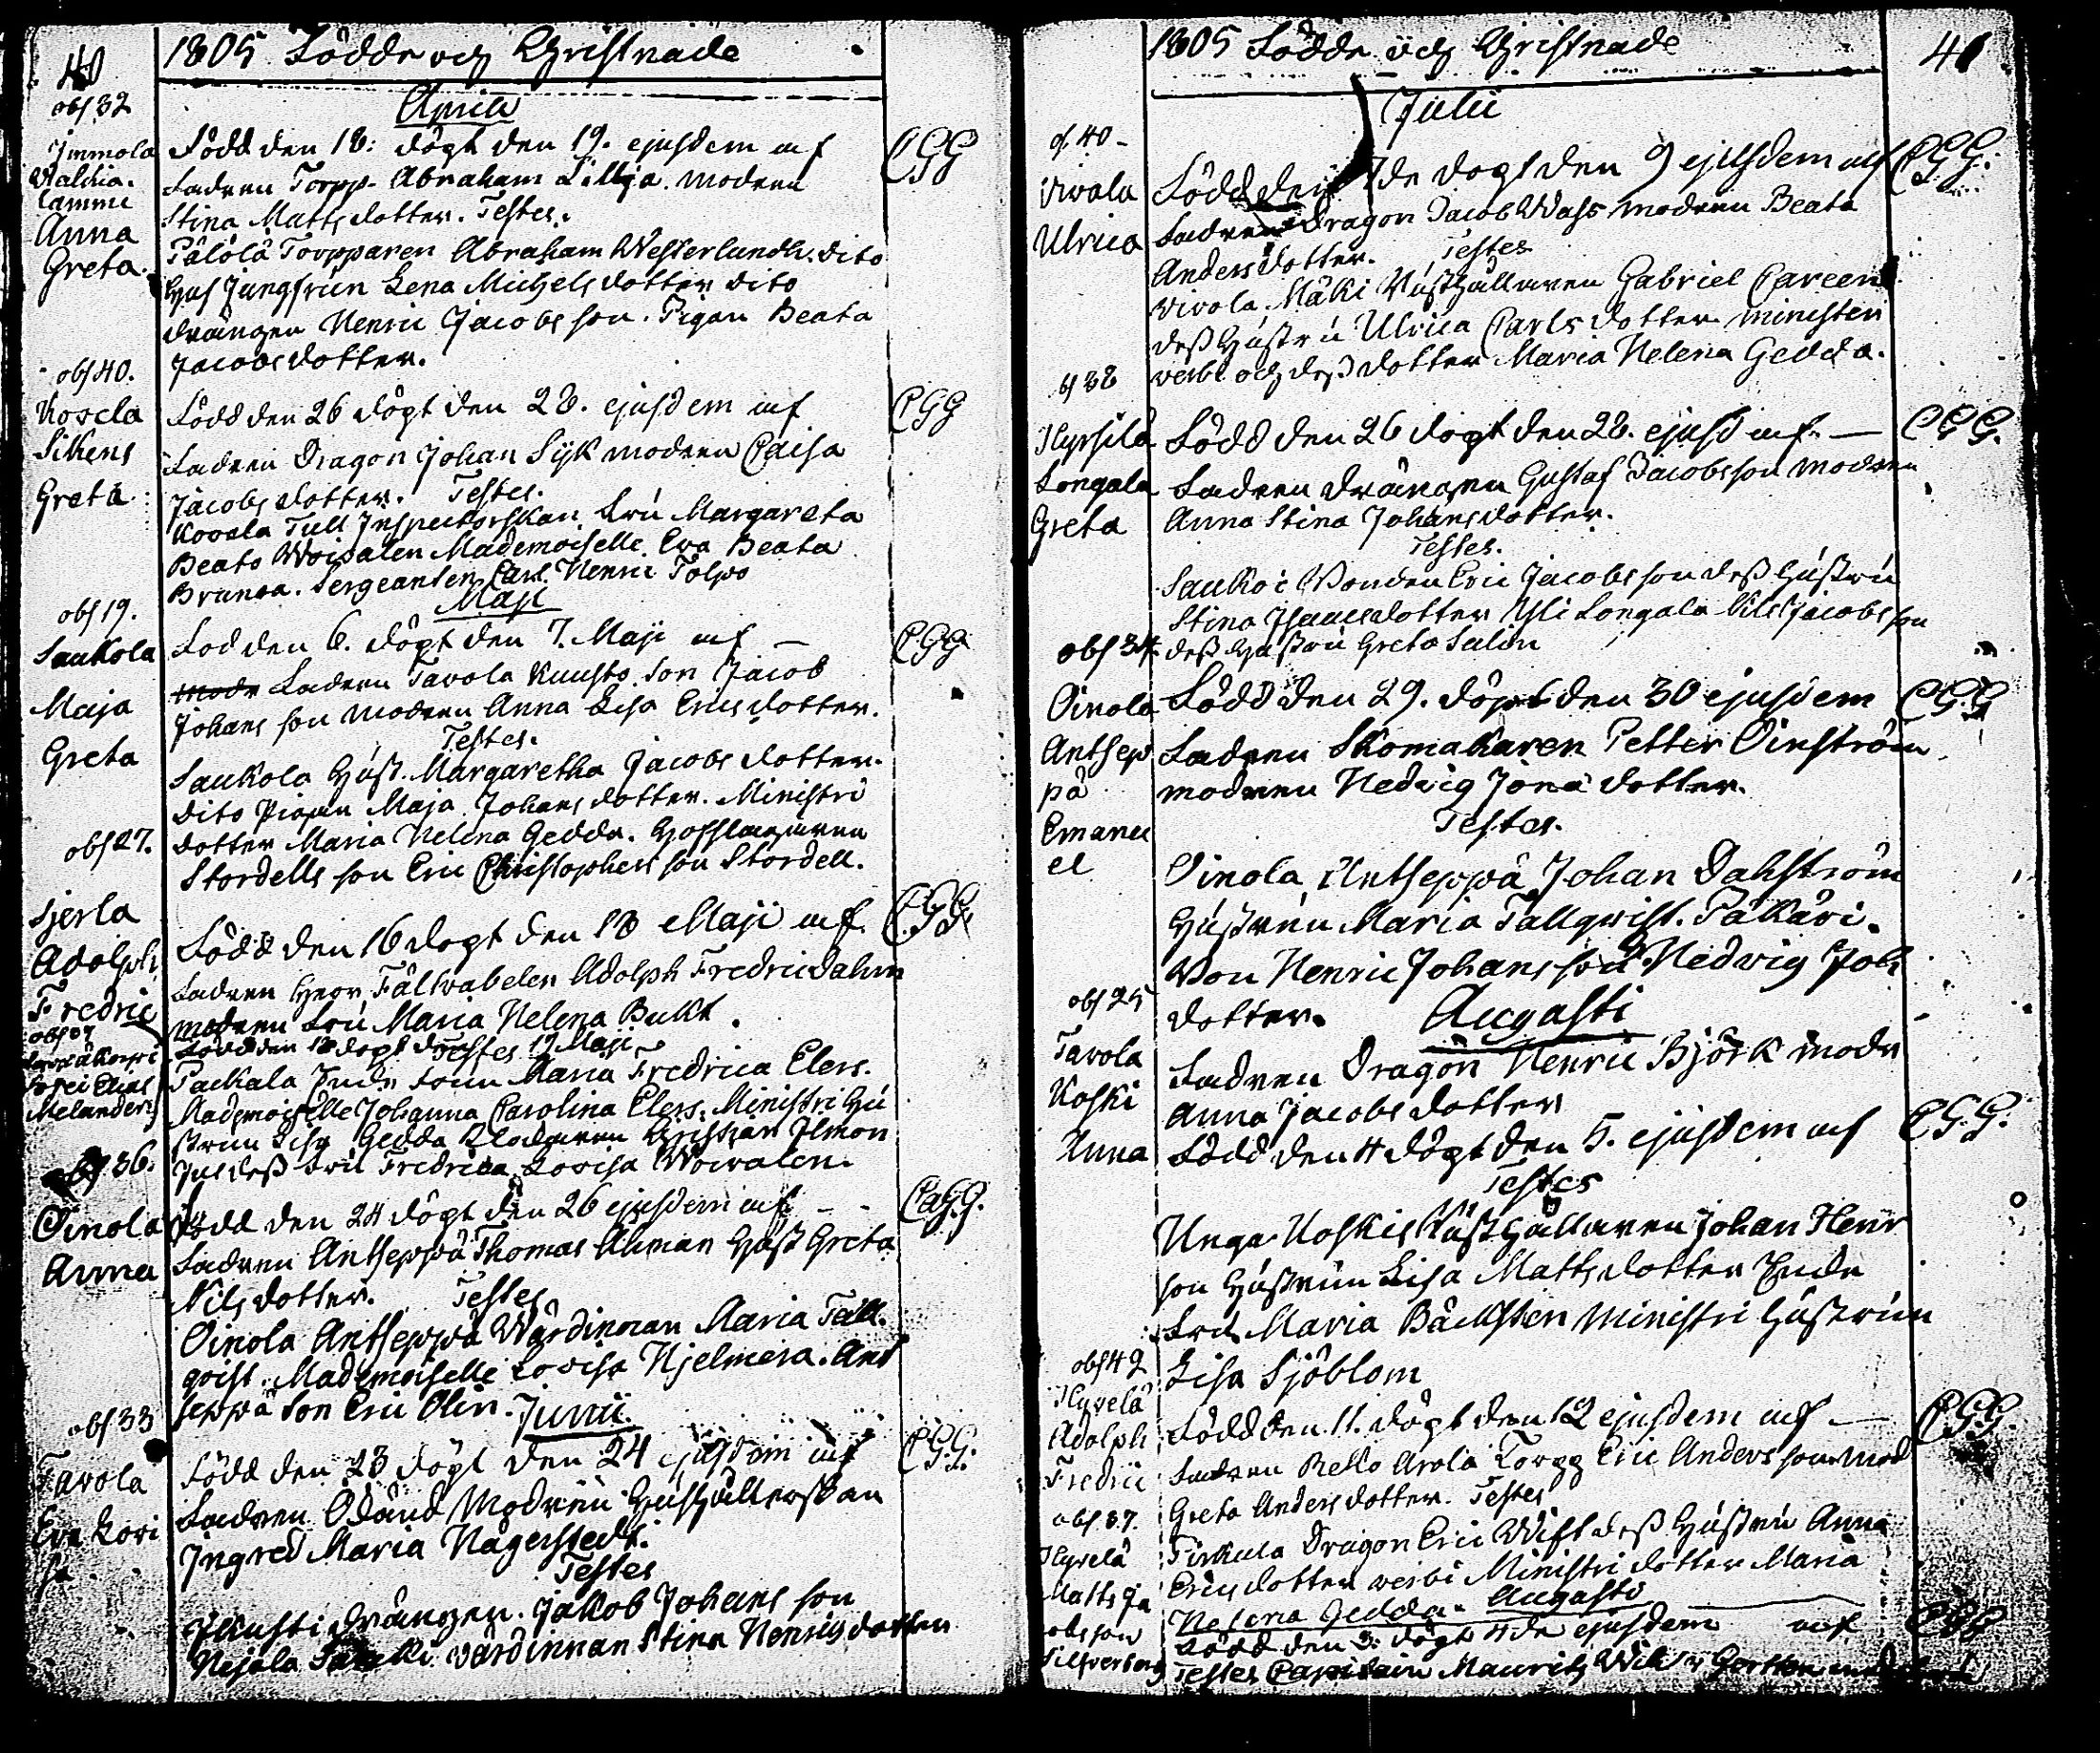 40
1805 Födde och Christnade
obs 32
Aprill
Immola
Född den 18: döpt den 19. ejusdem af
CGG
Fadren Torpp. Abraham Lillja. modren
Anna
Stina Matts dotter. Testes.
Greta.
Torpparen Abraham Westerlundh. dito
Jungfrun Lena Michels dotter dito
drängen Henric Jacobs son. Pigan Beata
Jacobs dotter.
obs 40.
Kosela
Född den 26 döpt den 28. ejusdem af
CGG
Sikens
Fadren Dragon Johan Syk modren Caisa
Greta
Jacobs dotter. Testes.
Tull Inspectorskan Fru Margareta
Beata Woivalen Mademoiselle Eva Beata
Brunoa. Sergeanten Carl Henric Polwo
Maji
obs 19.
Saukola
Föd den 6. döpt den 7. Maji af —
CGG
Modr Fadren Tavola Knusto son Jacob
Maja
Johans son modren Anna Lisa Erics dotter.
Testes.
Greta
Saukola Hust. Margaretha Jacobs dotter.
dito Pigan Maja Johans dotter. Ministri
obs 27.
dotter Maria Helena Gedda.
Stordells son Eric Christophers son Stordell.
Sjerla
Född den 16 döpt den 18 Maji af.
CGG
Adolph
Fadren Herr Fältwäbelen Adolph Fredric Dahm
Fredric
modren Fru Maria Helena Bukt.
obs 37
Född den 18 döpt den 19 Maji
Testes
Elias
Melanders
Paekala Enke Fruu Maria Fredrica Elers.
Mademoiselle Johanna Carolina Elers. Ministri Hu
strun Lisa Gedda Klockaren Christian Ilmon
obs 36.
dess Fru Fredrica Lovisa Woivalen.
Oinola
Född den 24 döpt den 26 ejusdem af —
CaGG.
Anna
Fadren Antseppä Thomas Ahman Hust Greta
Nils dotter. Testes
Oinola Antseppä Wärdinnan Maria Tall-
qvist. Mademoiselle Lovisa Hjelmera. Ant
seppä son Eric Olin.
Junii.
obs 33
Tavola
Född den 23 döpt den 24 ejusdem af
CGG.
Eva Lovi
Fadren Okänd Modren Hushållerskan
sa
Ingred Maria Hägerstedt.
Testes
drängen. Jakob Johans son
Hejola wärdinnan Stina Henrics dotter
1805 Födde och Christnade
41
Julii
of. 40 -
Vivola
Född den 7de döpt den 9 ejusdem af
CGG.
Ulrica
Fadren Dragon Jacob Wass modren Beata
Anders dotter. Testes
Vivola Mäki Rusthållaren Gabriel Careen
dess Hustru Ulrica Carls dotter. ministeri
verbi och dess dotter Maria Helena Gedda.
bs 38
Hyrsilä
Född den 26 döpt den 28. ejusd af. —
CGG.
Longala
Fadren Drängen Gustaf Jacobs son modren
Greta
Anna Stina Johans dotter.
Testes.
Bonden Eric Jacobs son dess Hustru
Stina Isaacs dotter Yli Longala Nils Jacobs son
obs 34.
dess Hustru Greta Salin
Oinola
Född den 29. döpt den 30 ejusdem
CGG
Antsep
Fadren Skomakaren Petter Oinström
pä
modren Hedvig Jöra dotter.
Emanu
Testes.
el
Oinola Antseppä Johan Dahlström
Hustrun Maria Tallqwist. Päkäri.
Von Henric Johans son Hedvig Joh
obs 25
dotter.
Augusti
Tavola
Fadren Dragon Henric Björk modr
Koski
Anna Jacobs dotter
Anna
Född den 4 döpt den 5. ejusdem af
CGG.
Testes
Unga Koskis Rusthållaren Johan Henr
son Hustrun Lisa Matts dotter Enke
Fru Maria Bäcksten Ministri Hustrun
obs 42
Lisa Sjöblom
Hyvelä
Född den 11. döpt den 12 ejusdem af —
CGG.
Adolph
Fadren Arola Torpp Eric Anders son. Mod
Fredric
Greta Anders dotter. Testes
obs 37.
Pirkula Dragon Eric Wift dess Hustru Anna
Hyvelä
Erics dotter verbi Ministri dotter Maria
Matts Ja
Helena Gedda.
Augusto
obs son
Född den 3: döpt 4de ejusdem af
Silfverberg
Testes Capitain Mauritz